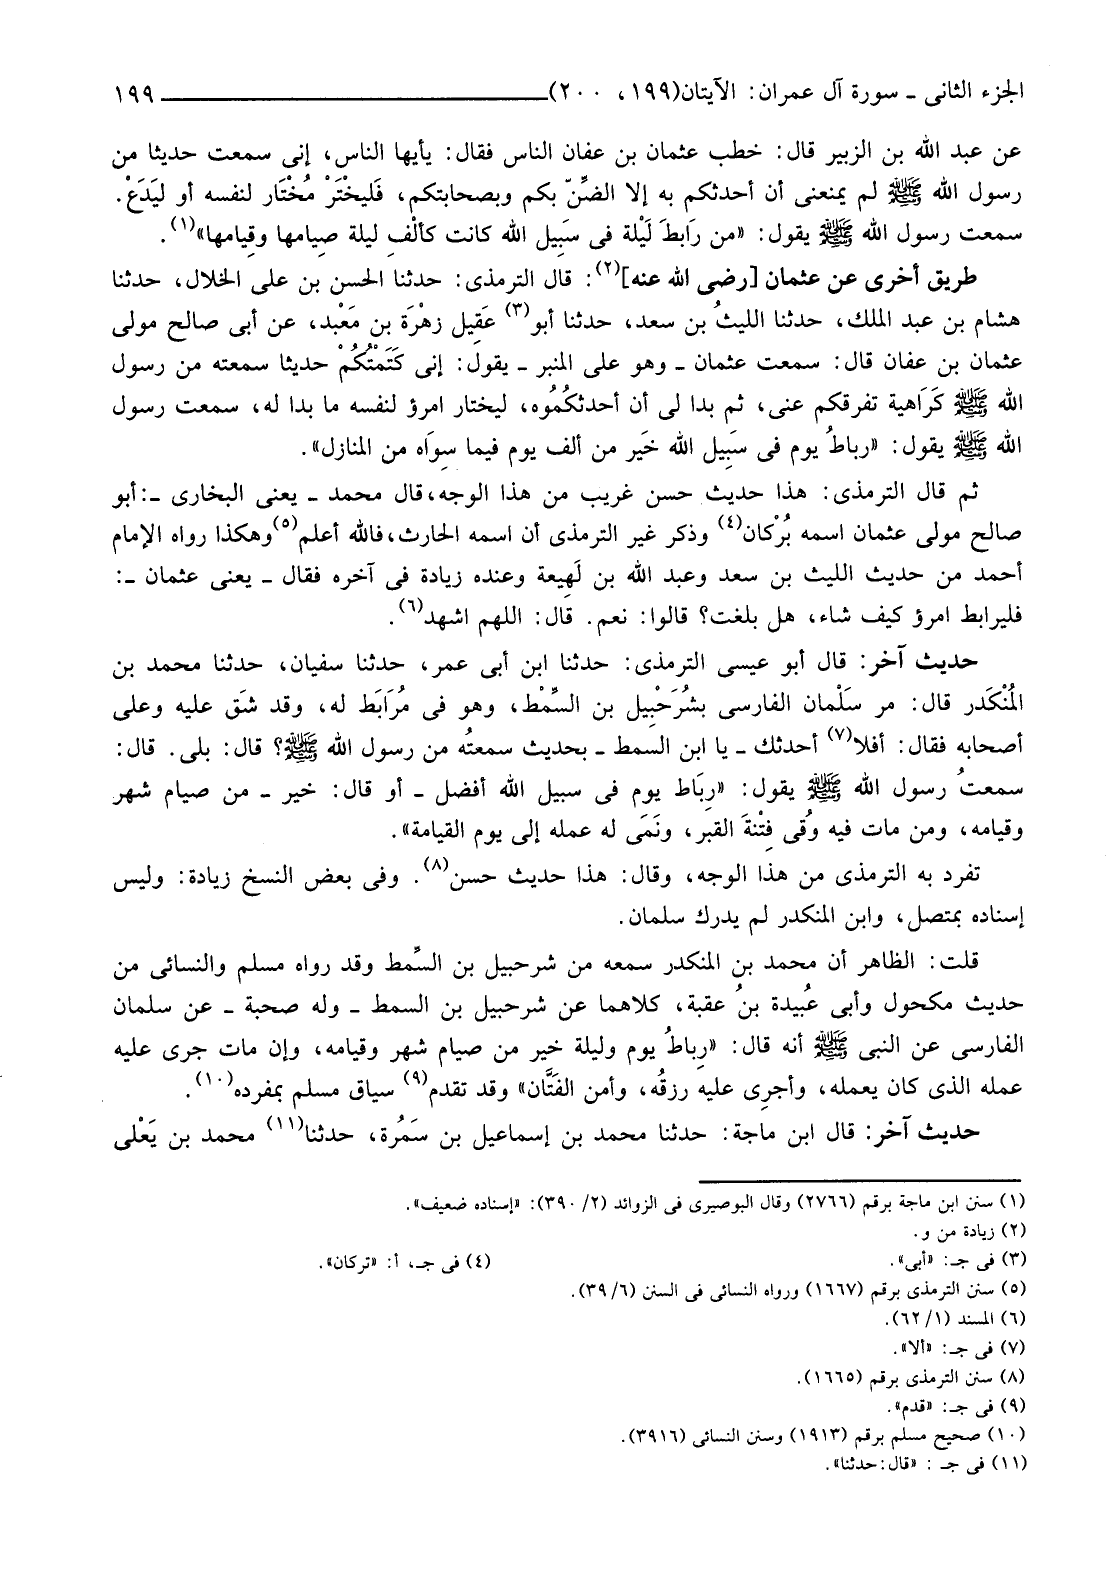 الجزء الثانى ـ سورة آل عمران: الآيتان(١٩٩، ٢٠٠) ١٩٩
عن عبد الله بن الزبير قال: خطب عثمان بن عفان الناس فقال: يأيها الناس، إنى سمعت حديثا من
رسول الله ﷺ لم يمنعنى أن أحدثكم به إلا الضِّنّ بكم وبصحابتكم، فَليخْتَرْ مُخْتَار لنفسه أو ليَدَعْ.
سمعت رسول الله ﷺ يقول: «من رَابطَ لَيْلة فى سَبِيل الله كانت كألْفِ ليلة صِيامها وقِيامها»(١).
طريق أخرى عن عثمان [رضى الله عنه](٢): قال الترمذى: حدثنا الحسن بن على الخلال، حدثنا
هشام بن عبد الملك، حدثنا الليثُ بن سعد، حدثنا أبو(٣) عَقِيل زهْرَة بن مَعْبد، عن أبى صالح مولى
عثمان بن عفان قال: سمعت عثمان ـ وهو على المنبر ـ يقول: إنى كَتَمْتُكُمْ حديثا سمعته من رسول
الله ﷺ كَرَاهية تفرقكم عنى، ثم بدا لى أن أحدثكُمُوه، ليختار امرؤ لنفسه ما بدا له، سمعت رسول
الله ﷺ يقول: «رباطُ يوم فى سَبِيل الله خَير من ألف يوم فيما سِوَاه من المنازل».
ثم قال الترمذى: هذا حديث حسن غريب من هذا الوجه،قال محمد ـ يعنى البخارى ـ:أبو
صالح مولى عثمان اسمه بُرْكان(٤) وذكر غير الترمذى أن اسمه الحارث،فالله أعلم(٥)وهكذا رواه الإمام
أحمد من حديث الليث بن سعد وعبد الله بن لَهِيعة وعنده زيادة فى آخره فقال ـ يعنى عثمان ـ:
فليرابط امرؤ كيف شاء، هل بلغت؟ قالوا: نعم. قال: اللهم اشهد(٦).
حديث آخر: قال أبو عيسى الترمذى: حدثنا ابن أبى عمر، حدثنا سفيان، حدثنا محمد بن
المُنْكَدر قال: مر سَلْمان الفارسى بشُرَحْبِيل بن السِّمْط، وهو فى مُرَابَط له، وقد شَق عليه وعلى
أصحابه فقال: أفلا(٧) أحدثك ـ يا ابن السمط ـ بحديث سمعتُه من رسول الله ﷺ؟ قال: بلى. قال:
سمعتُ رسول الله ﷺ يقول: «رِبَاط يوم فى سبيل الله أفضل ـ أو قال: خير ـ من صيام شهر
وقيامه، ومن مات فيه وُقى فِتْنةَ القبر، ونَمَى له عمله إلى يوم القيامة».
تفرد به الترمذى من هذا الوجه، وقال: هذا حديث حسن(٨). وفى بعض النسخ زيادة: وليس
إسناده بمتصل، وابن المنكدر لم يدرك سلمان.
قلت: الظاهر أن محمد بن المنكدر سمعه من شرحبيل بن السِّمط وقد رواه مسلم والنسائى من
حديث مكحول وأبى عُبيدة بنُ عقبة، كلاهما عن شرحبيل بن السمط ـ وله صحبة ـ عن سلمان
الفارسى عن النبى ﷺ أنه قال: «رِباطُ يوم وليلة خير من صيام شهر وقيامه، وإن مات جرى عليه
عمله الذى كان يعمله، وأجرِى عليه رزقُه، وأمن الفَتَّان» وقد تقدم(٩) سياق مسلم بمفرده(١٠).
حديث آخر: قال ابن ماجة: حدثنا محمد بن إسماعيل بن سَمُرة، حدثنا(١١) محمد بن يَعْلى
(١) سنن ابن ماجة برقم (٢٧٦٦) وقال البوصيرى فى الزوائد (٢/ ٣٩٠): «إسناده ضعيف».
(٢) زيادة من و.
(٣) فى جـ: «أبى». (٤) فى جـ، أ: «تركان».
(٥) سنن الترمذى برقم (١٦٦٧) ورواه النسائى فى السنن (٦/ ٣٩).
(٦) المسند (١/ ٦٢).
(٧) فى جـ: «ألا».
(٨) سنن الترمذى برقم (١٦٦٥).
(٩) فى جـ: «قدم».
(١٠) صحيح مسلم برقم (١٩١٣) وسنن النسائى (٣٩١٦).
(١١) فى جـ : «قال:حدثنا».